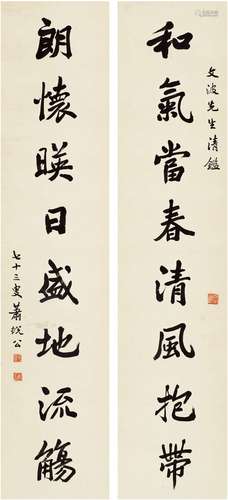 文波先生清鑑
和氣當春清風抱帶
朗懷暎日盛地流觴
七十三叟蕭蛻公